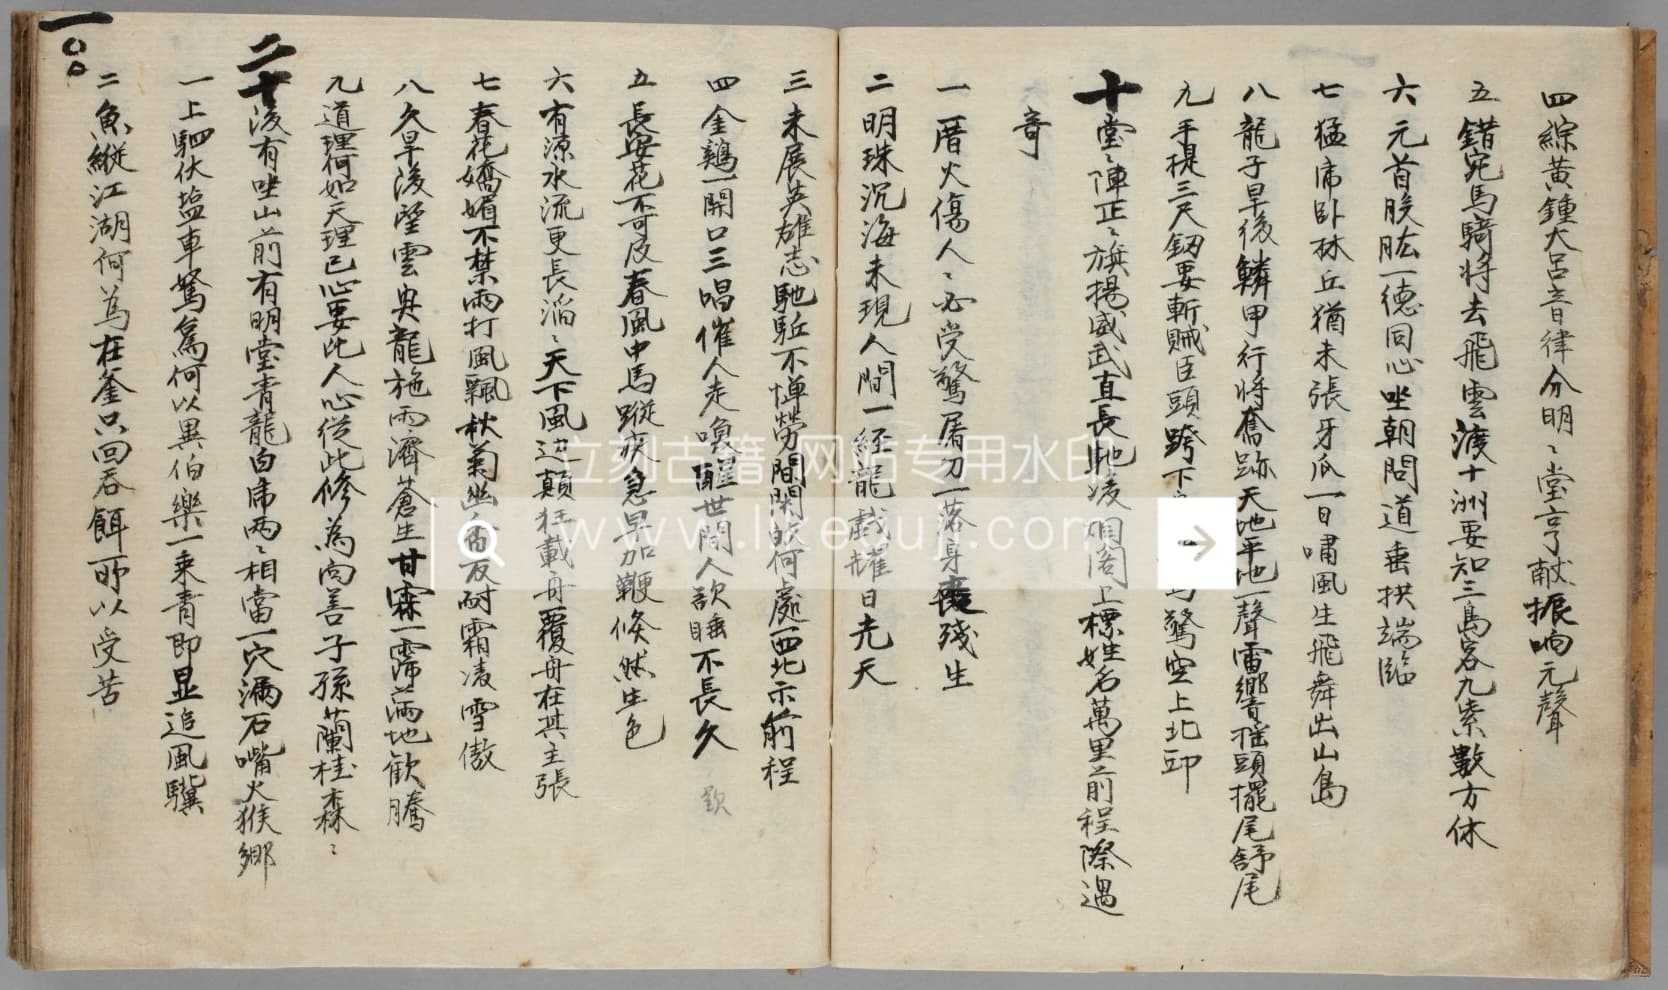 四綜黃鍾大呂音律分明〻堂亨献振响元聲
五錯宛馬騎将去飛雲渡十洲要知三島客九索數方休
六元首股肱一德同心坐朝問道垂拱端臨
七猛席卧林丘猶未張牙爪一日嘯風生飛舞出山島
八龍子旱後鱗甲行将奮跡天地平地一聲雷響摇頭擺尾舒尾
九手提三尺釼要斬賊臣頭跨下驚空上北邙
十堂〻陣正〻旗揚威武直長馳凌烟阁上標姓名萬里前程際遇
竒
一厝火傷人〻必觉驚屠刀一落身喪殘生
二明珠沉海未現人間一経龍戲耀日光天
三未展英雄志馳駈不憚勞閙閙的何處西北示前程
四金鷄一開口三唱催人走喚醒世間人欲睡不長久
欵
五長安花不可及春風中馬蹤疾急早加鞭倐然生色
六有源水流更長滔〻天下風边顛狂載舟覆舟在其主張
七春花嬌媚不禁雨打風飄秋菊幽香反耐霜凌雪傲
八久旱後望雲與龍施雨濟蒼生甘霖一霈满地歓騰
九道理何如天理已心要比人心從此修為向善子孫蘭桂森〻
二十後有坐山前有明堂青龍白席两〻相當一穴满石嘴火猴鄉
一上駟伏塩車駑駘何以異伯樂一乘青即显追風驥
二魚縱江湖何為在釜只回吞餌所以受苦
一〇〇
立刻古籍 网站专用水印
www.likeguji.com